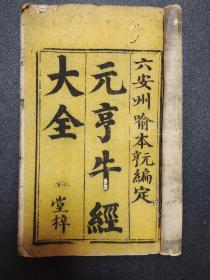 六安州喻本亢編定
元亨牛經
大全
堂梓